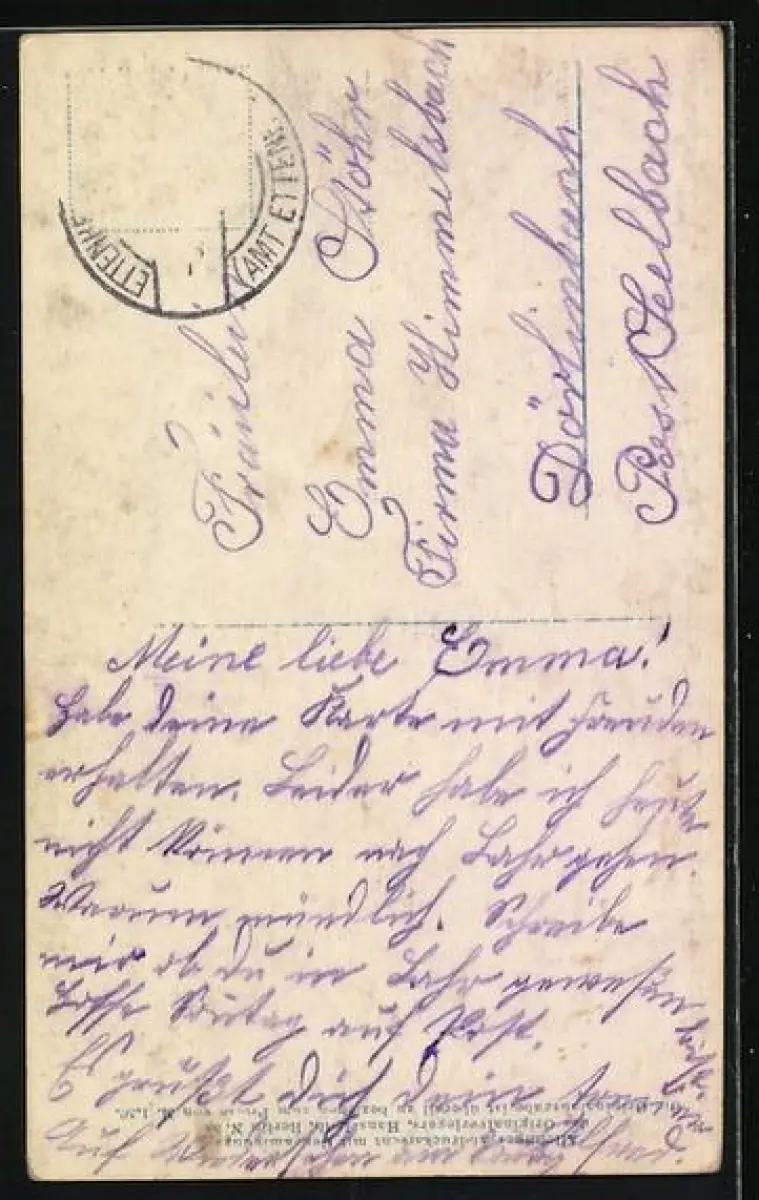 ETTENHE
(AMT ETTENH.
Fräulein
Emma Stöhr
Firma Himmelsbach
Dörlinbach
Post Seelbach
Meine liebe Emma!
Habe deine Karte mit Freuden
erhalten. Leider habe ich heute
nicht können nach Lahr gehen.
Warum mündlich. Schreibe
mir ob du in Lahr gewesen
Hoffe Sontag auf Post.
Es grüßt dich dein
Auf Wiedersehen